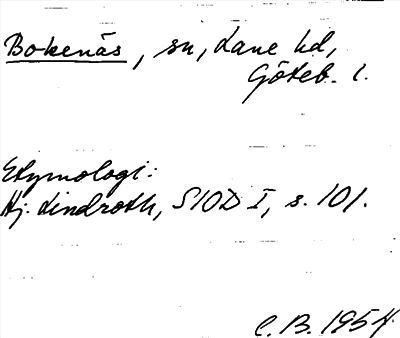 Bokenäs, sn, Lane hd,
Göteb. l.
Etymologi:
Hj. Lindroth, SIOD I, s. 101.
C. B. 1954.